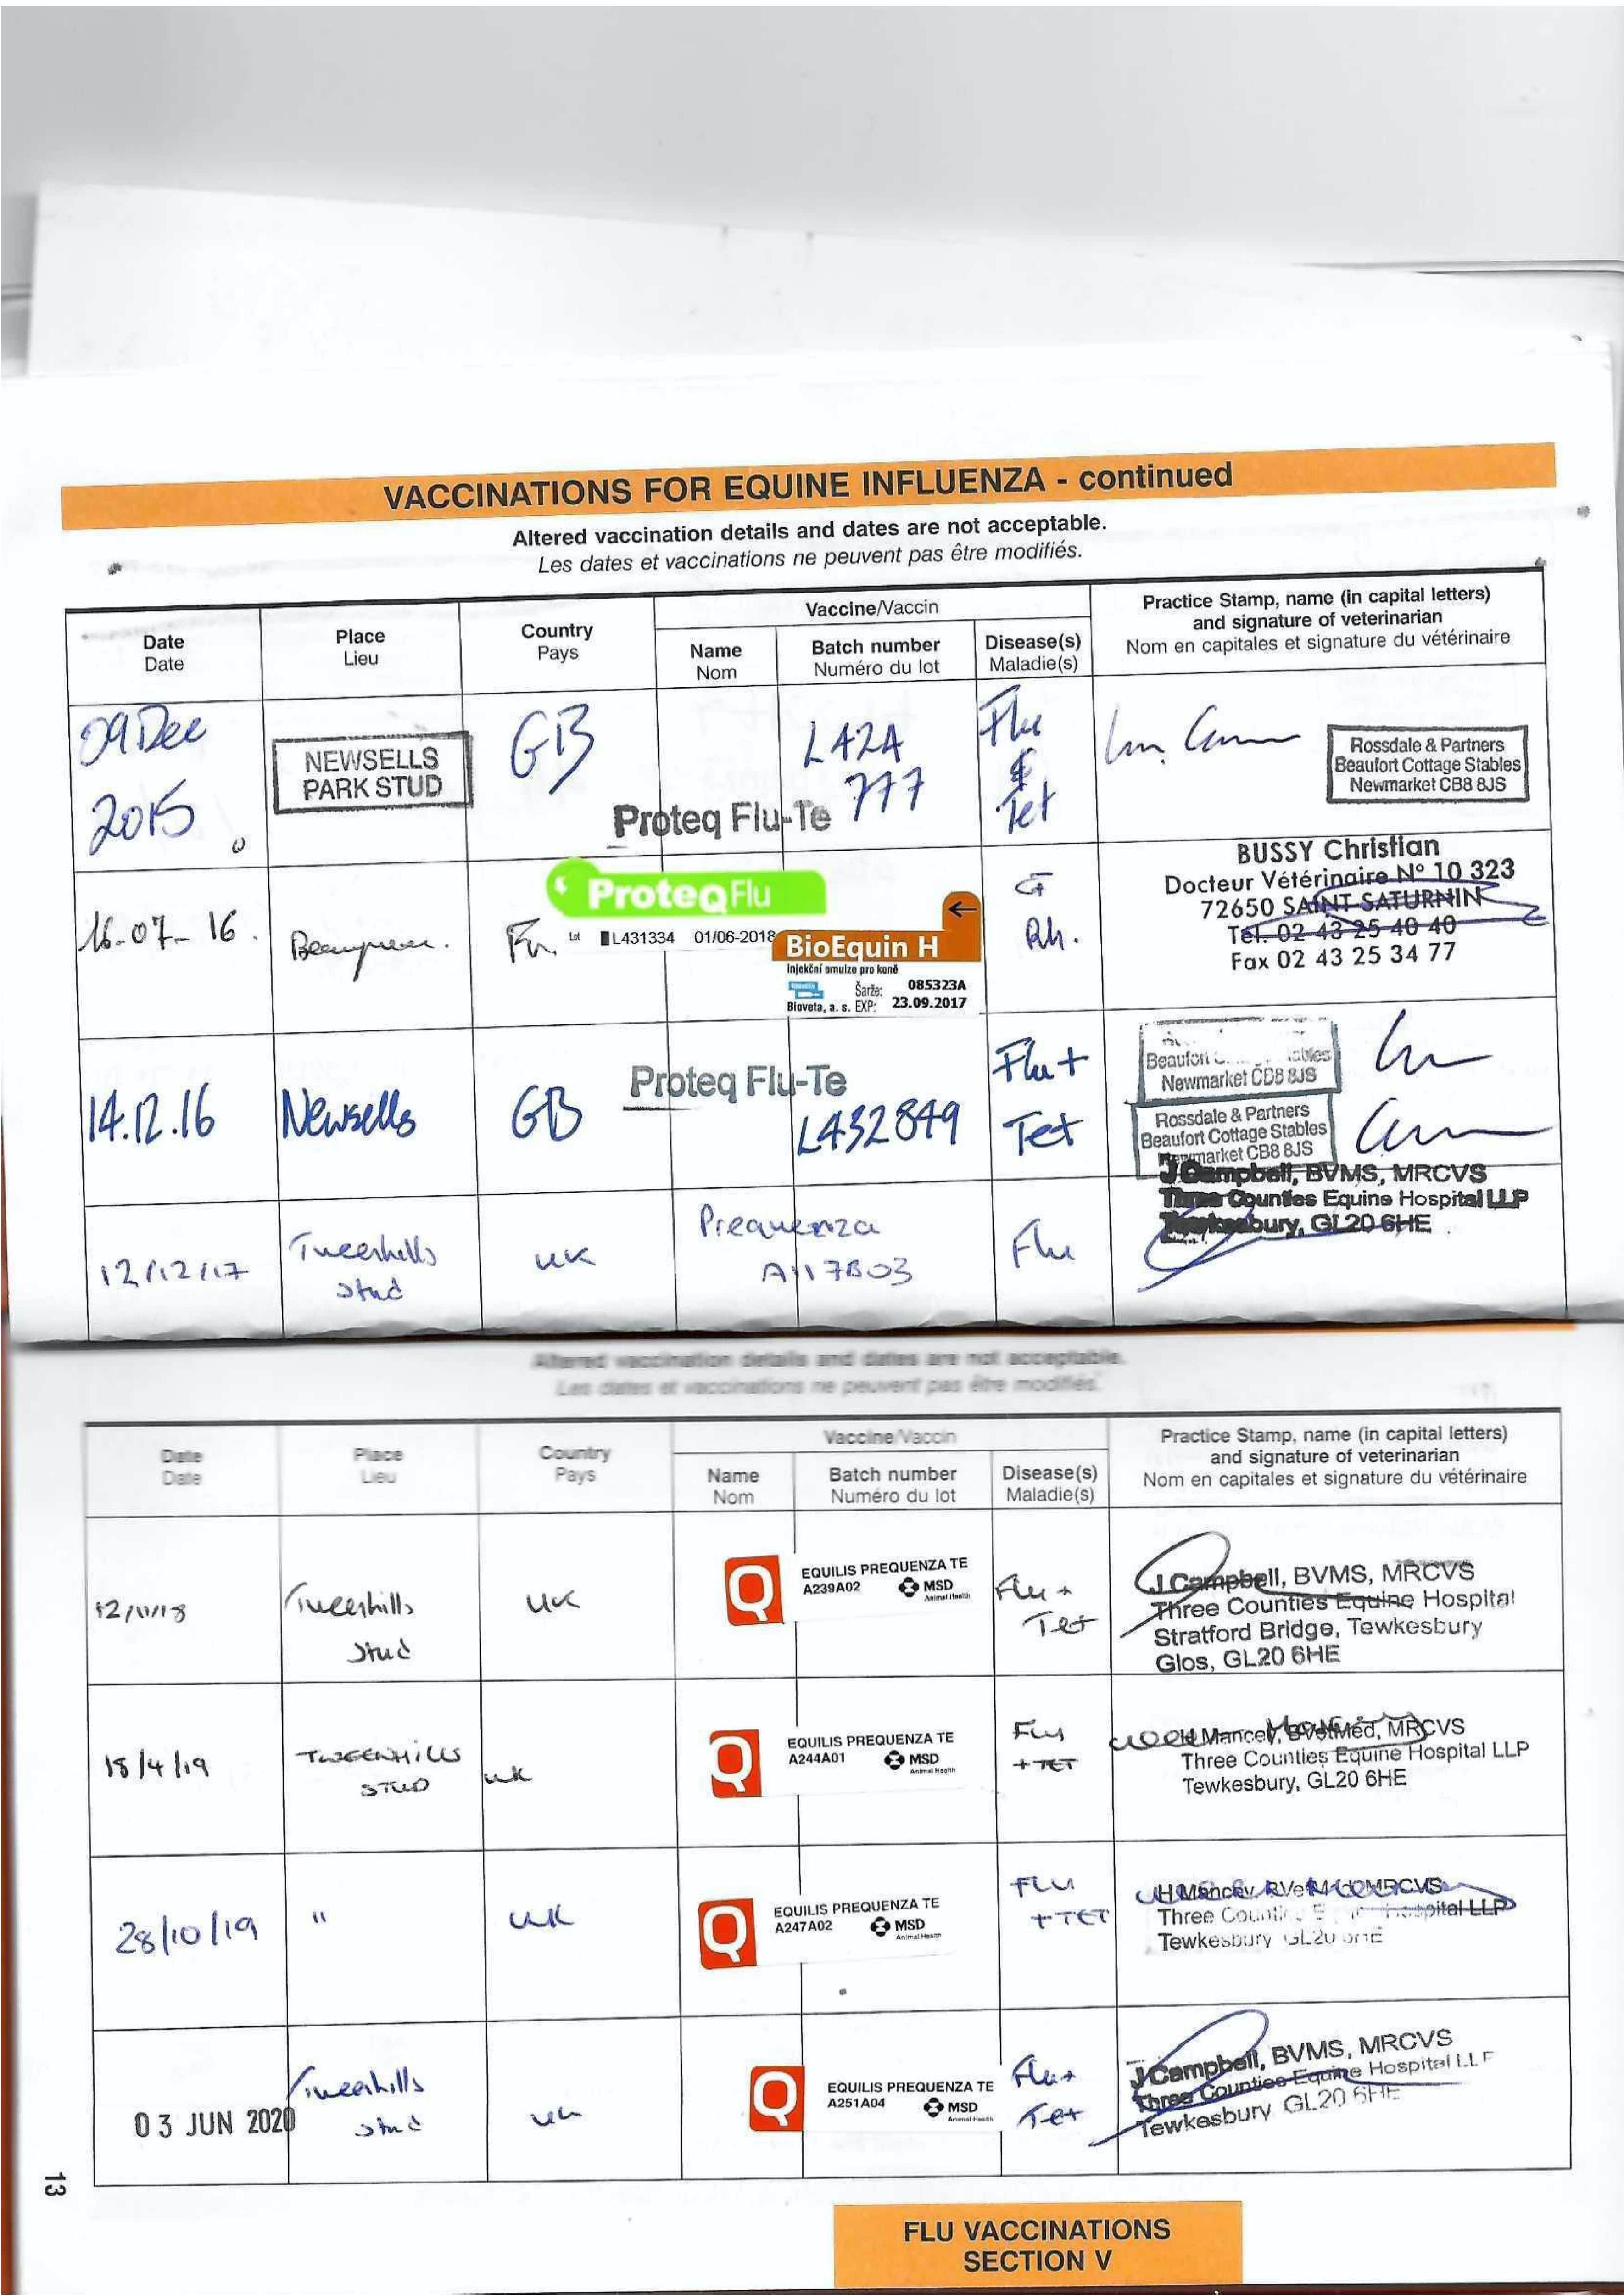 VACCINATIONS FOR EQUINE INFLUENZA - continued
Altered vaccination details and dates are not acceptable.
Les dates et vaccinations ne peuvent pas être modifiés.
Date
Date
Place
Lieu
Country
Pays
Vaccine/Vaccin
Name
Nom
Batch number
Numéro du lot
Disease(s)
Maladie(s)
Practice Stamp, name (in capital letters)
and signature of veterinarian
Nom en capitales et signature du vétérinaire
09 Dec
2015
NEWSELLS
PARK STUD
GB
Proteq Flu-Te
L42A
777
Flu
&
Tet
Rossdale & Partners
Beaufort Cottage Stables
Newmarket CB8 8JS
16-07-16.
ProteqFlu
Lot L431334 01/06-2018
BioEquin H
Injekční emulze pro koně
Šarže: 085323A
Bioveta, a. s. EXP: 23.09.2017
G
Rh.
BUSSY Christian
Docteur Vétérinaire N° 10 323
72650 SAINT SATURNIN
Tél. 02 43 25 40 40
Fax 02 43 25 34 77
14.12.16
Newsells
GB
Proteq Flu-Te
L432849
Flu +
Tet
Beaufort
Newmarket CB8 8JS
Rossdale & Partners
Beaufort Cottage Stables
Newmarket CB8 8JS
12/12/17
Tweenhills
Stud
UK
Prequenza
A117B03
Flu
J Campbell, BVMS, MRCVS
Three Counties Equine Hospital LLP
Tewkesbury, GL20 6HE
Altered vaccination details and dates are not acceptable.
Les dates et vaccinations ne peuvent pas être modifiés.
Date
Date
Place
Lieu
Country
Pays
Vaccine/Vaccin
Name
Nom
Batch number
Numéro du lot
Disease(s)
Maladie(s)
Practice Stamp, name (in capital letters)
and signature of veterinarian
Nom en capitales et signature du vétérinaire
12/11/18
Tweenhills
Stud
UK
Q
EQUILIS PREQUENZA TE
A239A02 MSD
Animal Health
Flu +
Tet
J Campbell, BVMS, MRCVS
Three Counties Equine Hospital
Stratford Bridge, Tewkesbury
Glos, GL20 6HE
18/4/19
TWEENHILLS
STUD
UK
Q
EQUILIS PREQUENZA TE
A244A01 MSD
Animal Health
Flu
+ TET
H Mancey, BVetMed, MRCVS
Three Counties Equine Hospital LLP
Tewkesbury, GL20 6HE
28/10/19
"
UK
Q
EQUILIS PREQUENZA TE
A247A02 MSD
Animal Health
FLU
+ TET
H Mancey BVetMed MRCVS
Three Counties Hospital LLP
Tewkesbury GL20 6HE
03 JUN 2020
Tweenhills
Stud
UK
Q
EQUILIS PREQUENZA TE
A251A04 MSD
Animal Health
Flu +
Tet
J Campbell, BVMS, MRCVS
Three Counties Equine Hospital LLP
Tewkesbury GL20 6HE
13
FLU VACCINATIONS
SECTION V